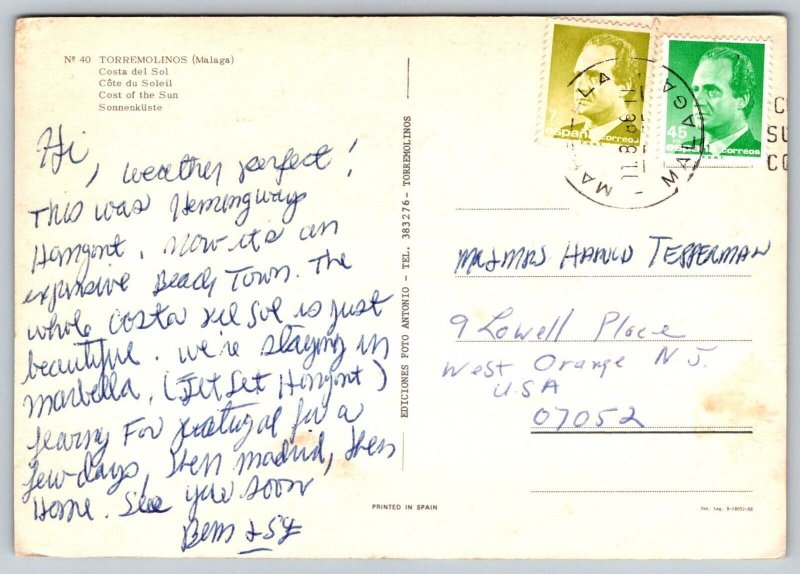 Nº 40 TORREMOLINOS (Malaga)
Costa del Sol
Côte du Soleil
Cost of the Sun
Sonnenküste
Hi
, weather perfect!
This was Hemingways
Hangout. Now it's an
expensive Beach Town. The
whole Costa del Sol is just
beautiful. We're staying in
Marbella, (Jet Set Hangout)
leaving For Portugal for a
few days, then Madrid, then
Home. See you soon
EDICIONES FOTO ANTONIO - TEL. 383276 - TORREMOLINOS
PRINTED IN SPAIN
7
españa correos
45
españa correos
MALAGA
11.8.86
Mr & Mrs Harold Tepperman
9 Lowell Place
West Orange N.J.
USA
07052